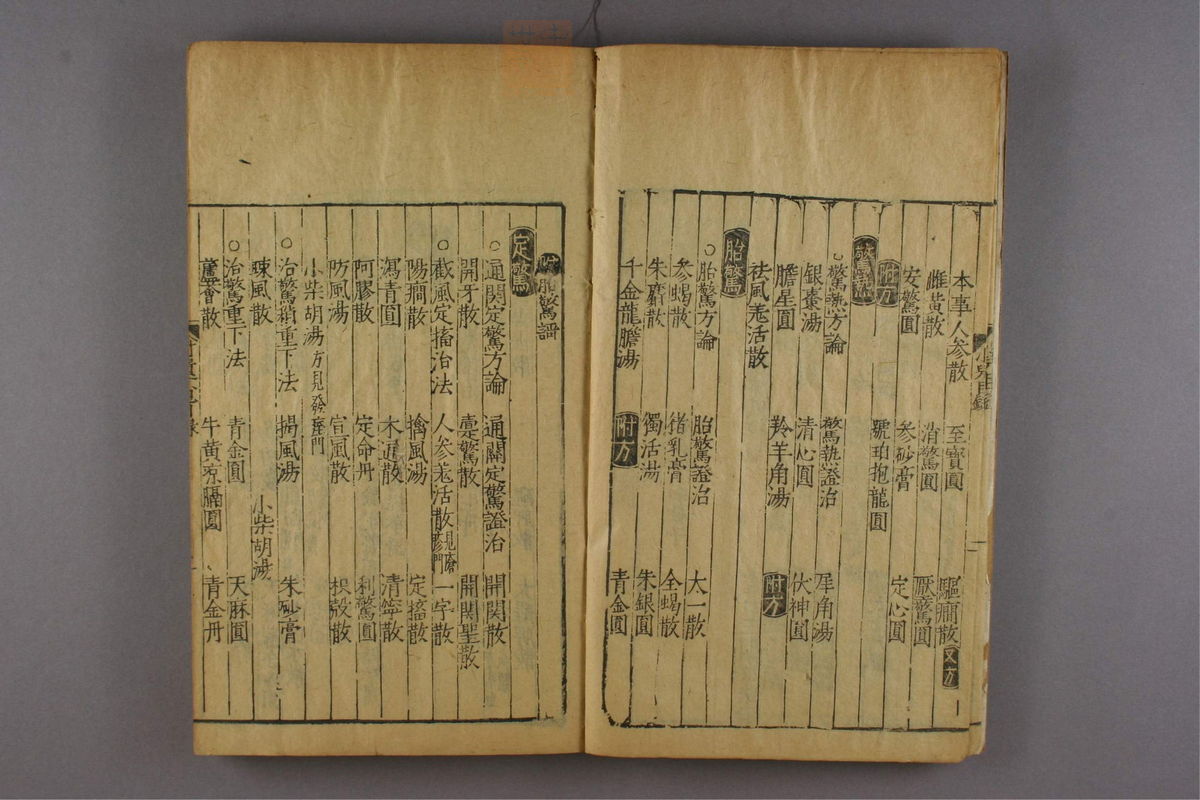 本事人參散 至寶圓 驅癇散 又方
雌黃散 消驚圓 厭驚圓
安驚圓 參砂膏 定心圓
附方 琥珀抱龍圓
驚熱
○驚熱方論 驚熱證治 犀角湯
銀棗湯 清心圓 伏神圓
膽星圓 羚羊角湯 附方
祛風羗活散
胎驚
○胎驚方論 胎驚證治 太一散
參蝎散 猪乳膏 全蝎散
朱麝散 獨活湯 朱銀圓
千金龍膽湯 附方 青金圓
附胎驚譜
定驚
○通關定驚方論 通關定驚證治 開關散
開牙散 㯱驚散 開關聖散
○截風定搐治法 人參羗活散 一字散
陽癇散 擒風湯 定搐散
瀉青圓 木通散 清寧散
阿膠散 定命丹 利驚圓
防風湯 宣風散 枳殼散
小柴胡湯 方見發
○治驚稍重下法 揭風湯 朱砂膏
疎風散 小柴胡湯
○治驚重下法 青金圓 天麻圓
蘆薈散 牛黃凉膈圓 青金丹